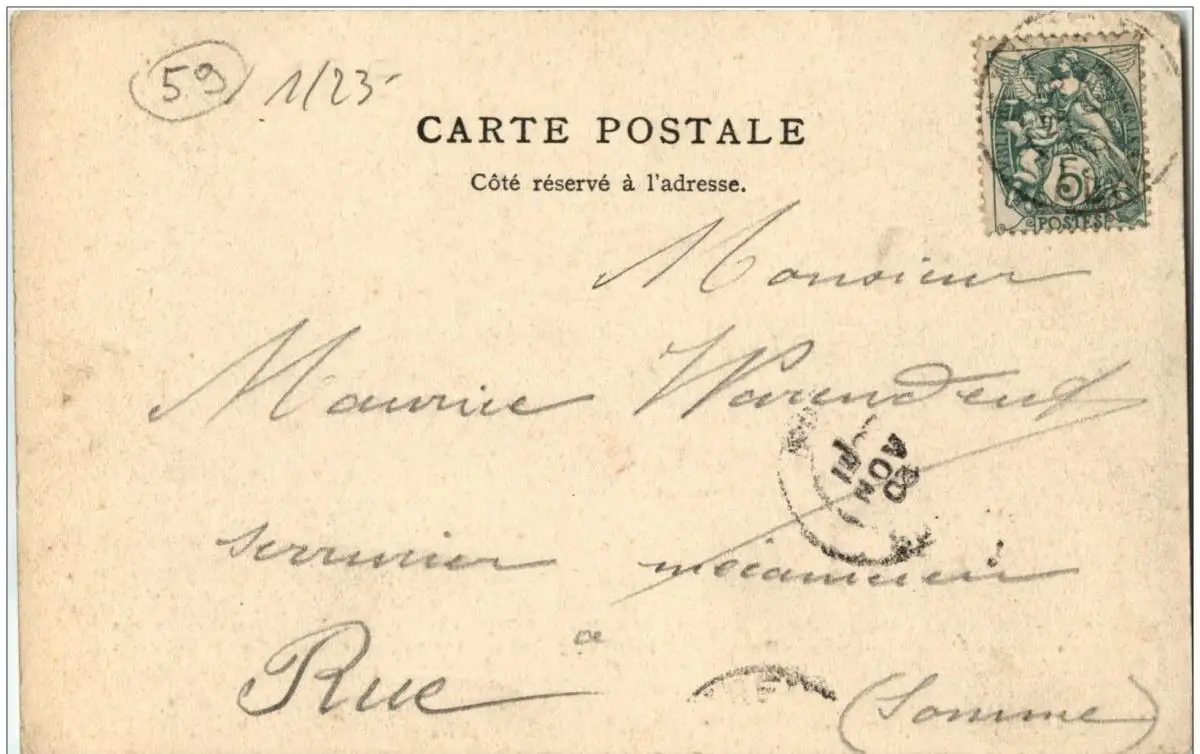 59 1/23-
CARTE POSTALE
Côté réservé à l'adresse.
5
POSTES
Monsieur
Maurice
NOV
serrurier mécanicien
à
Rue (Somme)